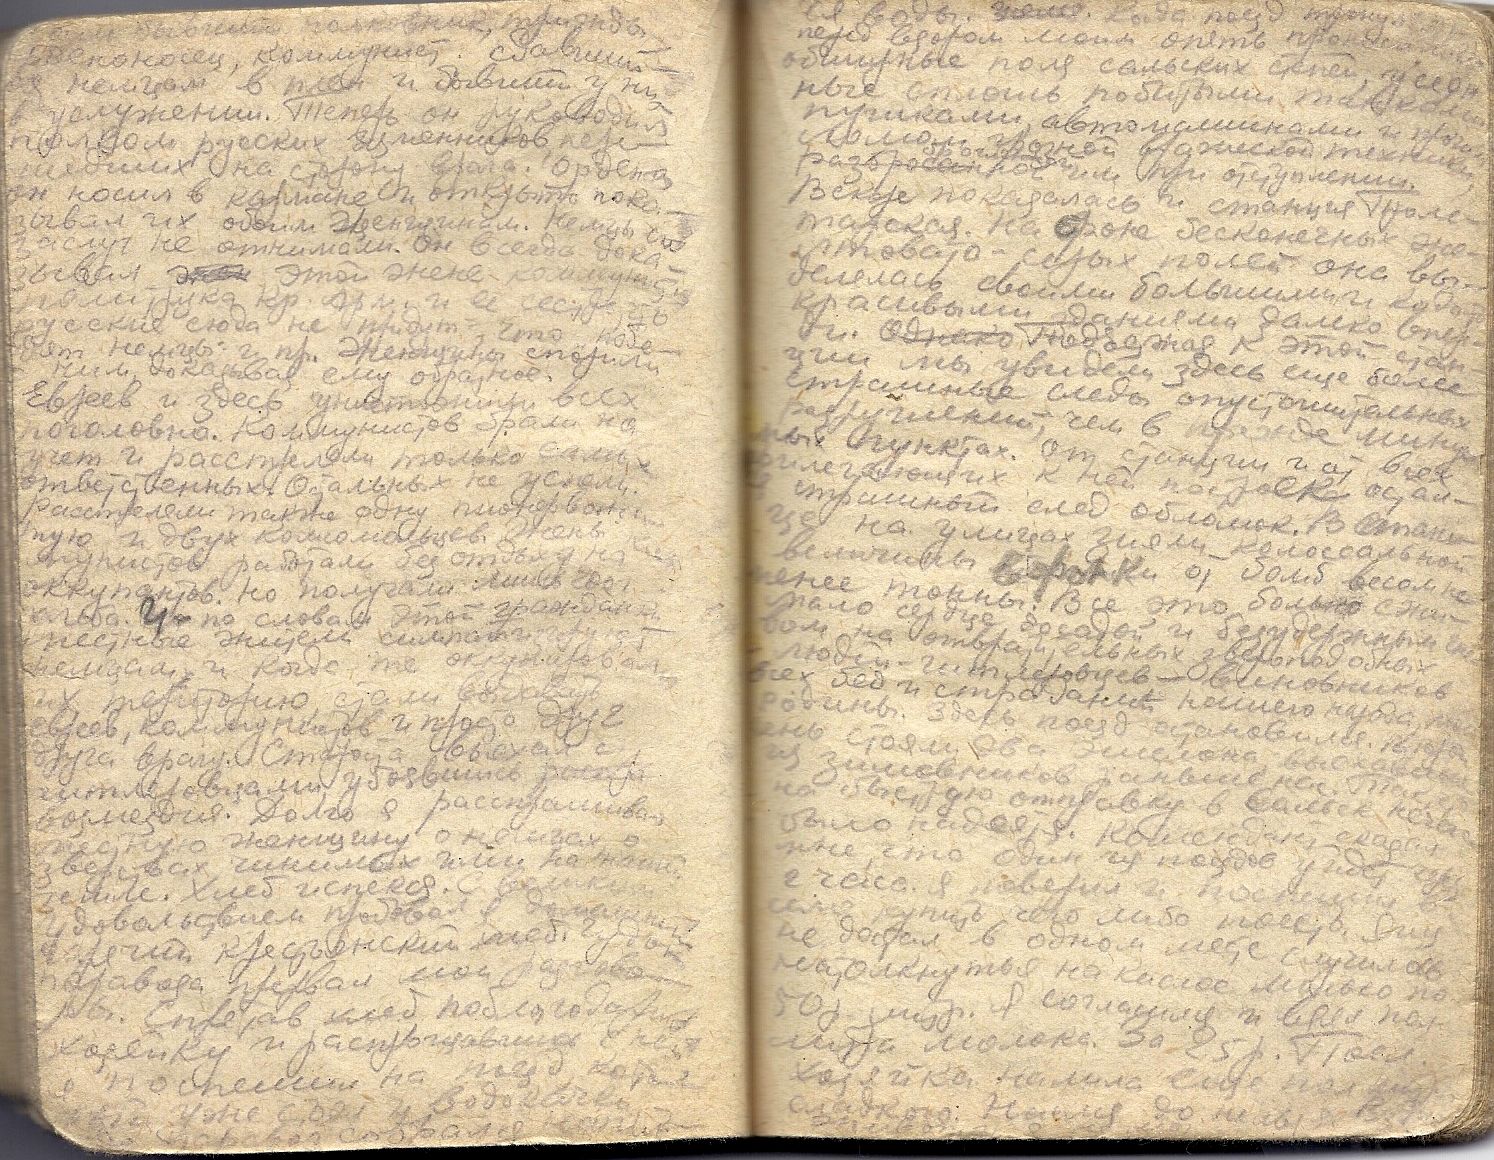 бывший полковник, трижды
орденоносец, коммунист. сдавший-
ся немцам в плен и бывший у них
в услужении. Теперь он руководил
полком русских изменников пере-
шедших на сторону врага. Ордена
он носил в кармане и открыто пока-
зывал их обеим женщинам. Немцы его
заслуг не отнимали. Он всегда дока
зывал этой жене
политрука Кр. Арм. и ее сестре, что
русские сюда не придут, что побе-
дят немцы и пр. Женщины спорили
с ним, доказывая ему обратное.
Евреев и здесь уничтожили всех
поголовно. Коммунистов брали на
учет и расстреляли только самых
ответственных. Остальных не успели.
Расстреляли также одну пионервожа-
тую и двух комсомольцев. Жены ком-
мунистов работали без отдыху на
оккупантов. Но получали лишь 200 г.
хлеба. И по словам этой гражданки
местные жители симпатизируют
немцам, и когда те оккупировали
их территорию стали выдавать
евреев, коммунистов и просто друг
друга врагу. Староста выехал с
гитлеровцами убоявшись
возмездия. Долго я расспрашивал
местную женщину о немцах о
зверствах чинимых ими на нашей
земле. Хлеб испекся. С великим
удовольствием пробовал я домашний
горячий крестьянский хлеб. Гудок
паровоза прервал мой разгово-
ры. Спрятав хлеб, поблагодарив
хозяйку и распрощавшись с ней
я поспешил на поезд который
уже стоял у водокачки
паровоз собрался
ся воды. Когда поезд тронулся
перед взором моим опять
обширные поля сальских степей, усеян
ные сплошь побитыми танками
пушками, автомашинами и прочим
ломом грозной вражеской техники,
разбросанной им при отступлении.
Вскоре показалась и станция Проле-
тарская. На фоне бесконечных жел-
товато-серых полей она вы-
делялась своими большими и когда-то
красивыми зданиями далеко впере-
ди. Однако Подъезжая к этой стан-
ции мы увидели здесь еще более
страшные следы опустошительных
разрушений, чем в прежде минув
ных пунктах. От станции и от всех
прилегающих к ней построек остал-
ся страшный след обломок. В стани-
це на улицах зияли колоссальной
величины воронки от бомб весом не
менее тонны. Все это больно сжи-
мало сердце досадой и безудержным гне-
вом на отвратительных звероподобных
людей-гитлеровцев - виновников
всех бед и страданий нашего народа,
родины. Здесь поезд остановился. Впере-
ди стояли два эшелона выехавшие
из Зимовников раньше нас. Так что
на быструю отправку в Сальск нельзя
было надеятся. Комендант сказал
мне, что один из поездов уйдет через
2 часа. Я поверил и поспешил в
село купить чего либо поесть. Яиц
не достал в одном месте случилось
натолкнутья на кислое молоко по
50 р. литр. Я согласился и взял пол
литра молока. За 25 р. Посл.
хозяйка налила еще пол литра
сладкого. Напился до